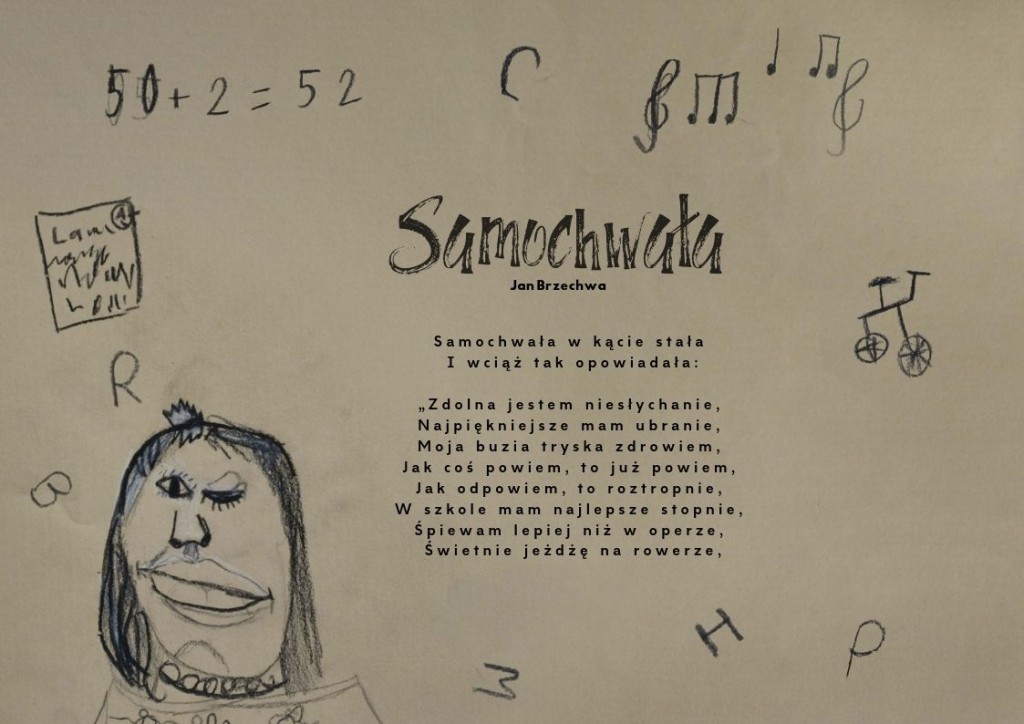 50 + 2 = 52
C
Samochwała
Jan Brzechwa
R
Samochwała w kącie stała
I wciąż tak opowiadała:
„Zdolna jestem niesłychanie,
Najpiękniejsze mam ubranie,
Moja buzia tryska zdrowiem,
Jak coś powiem, to już powiem,
Jak odpowiem, to roztropnie,
B
W szkole mam najlepsze stopnie,
Śpiewam lepiej niż w operze,
Świetnie jeżdżę na rowerze,
H
P
M